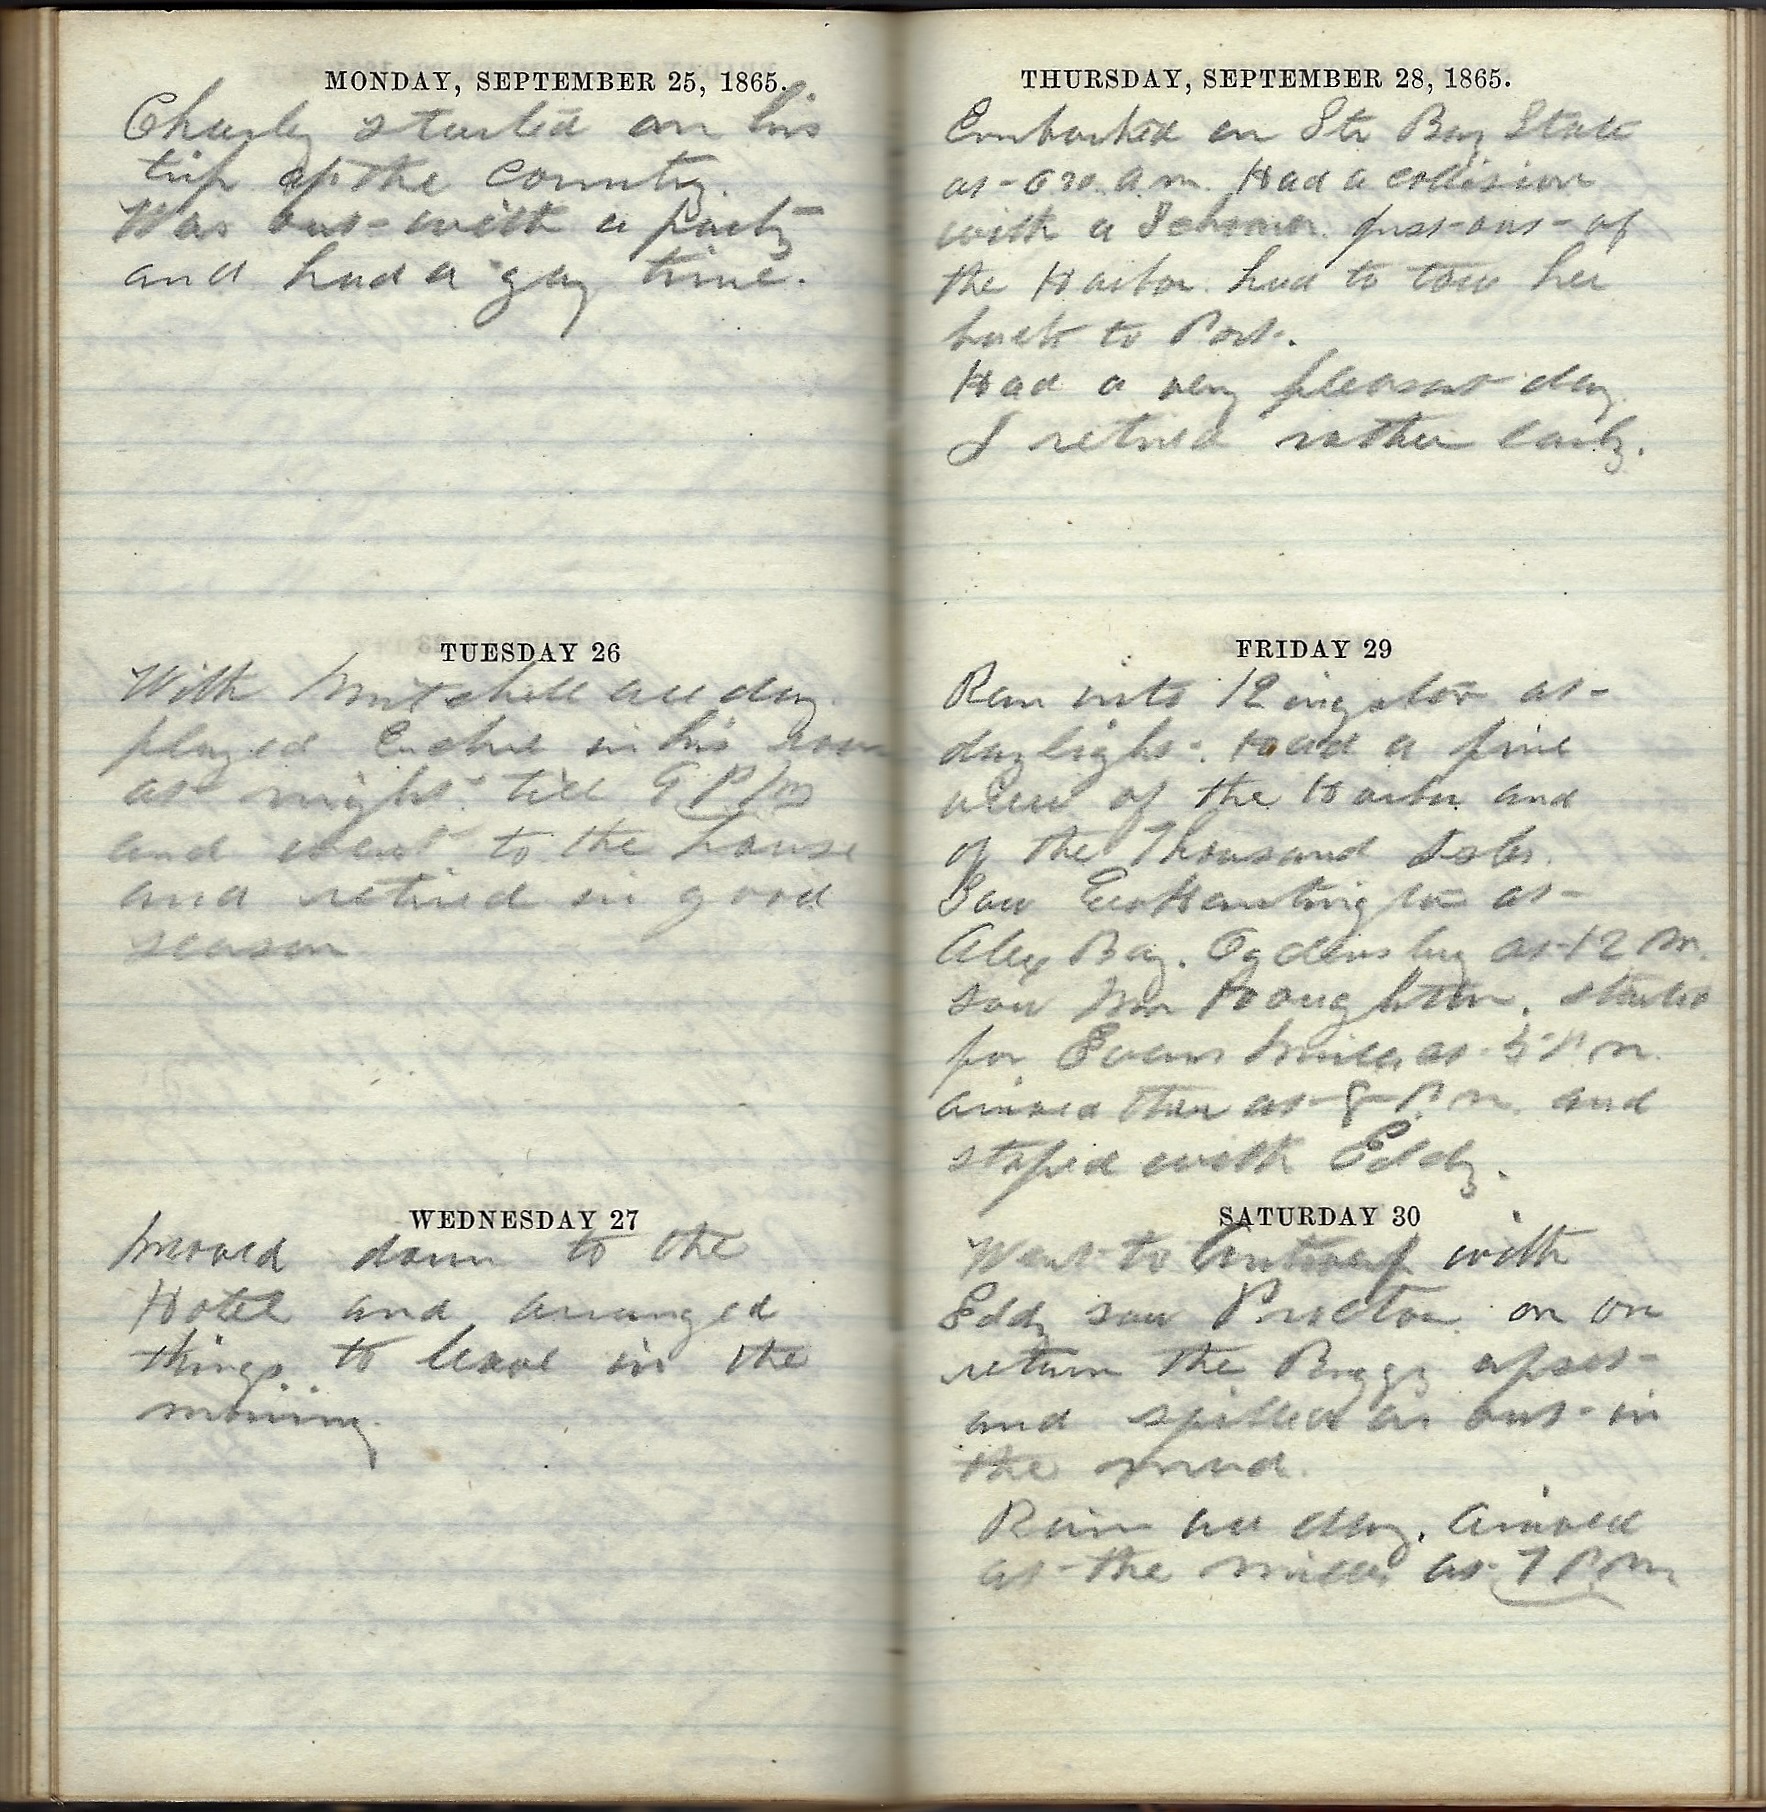 MONDAY, SEPTEMBER 25, 1865.
Charley started on his
trip up the Country.
Was out with a party
and had a gay time.
TUESDAY 26
With Mitchell all day.
played Euchre in his room
at night till 9 P.M
and went to the house
and retired in good
season
WEDNESDAY 27
Moved down to the
Hotel and arranged
things to leave in the
morning.
THURSDAY, SEPTEMBER 28, 1865.
Embarked on Str Bay State
at a.m. Had a collision
with a Schooner just out of
the Harbor had to tow her
back to Port.
Had a very pleasant day.
I retired rather early.
FRIDAY 29
Ran into Kingston at
daylight. Had a fine
view of the Harbor and
of the Thousand Isles.
Saw Huntington at
Alex Bay. Ogdensburg at 12 M.
saw Mr Houghton. started
for Evans Mills at 5 P.M.
arrived there at 8 P.M. and
stoped with Eddy.
SATURDAY 30
Went to Antwerp with
Eddy saw Proctor. on on
return the Buggy upset
and spilled us out in
the mud.
Rain all day. Arrived
at the mills at 7 P.M